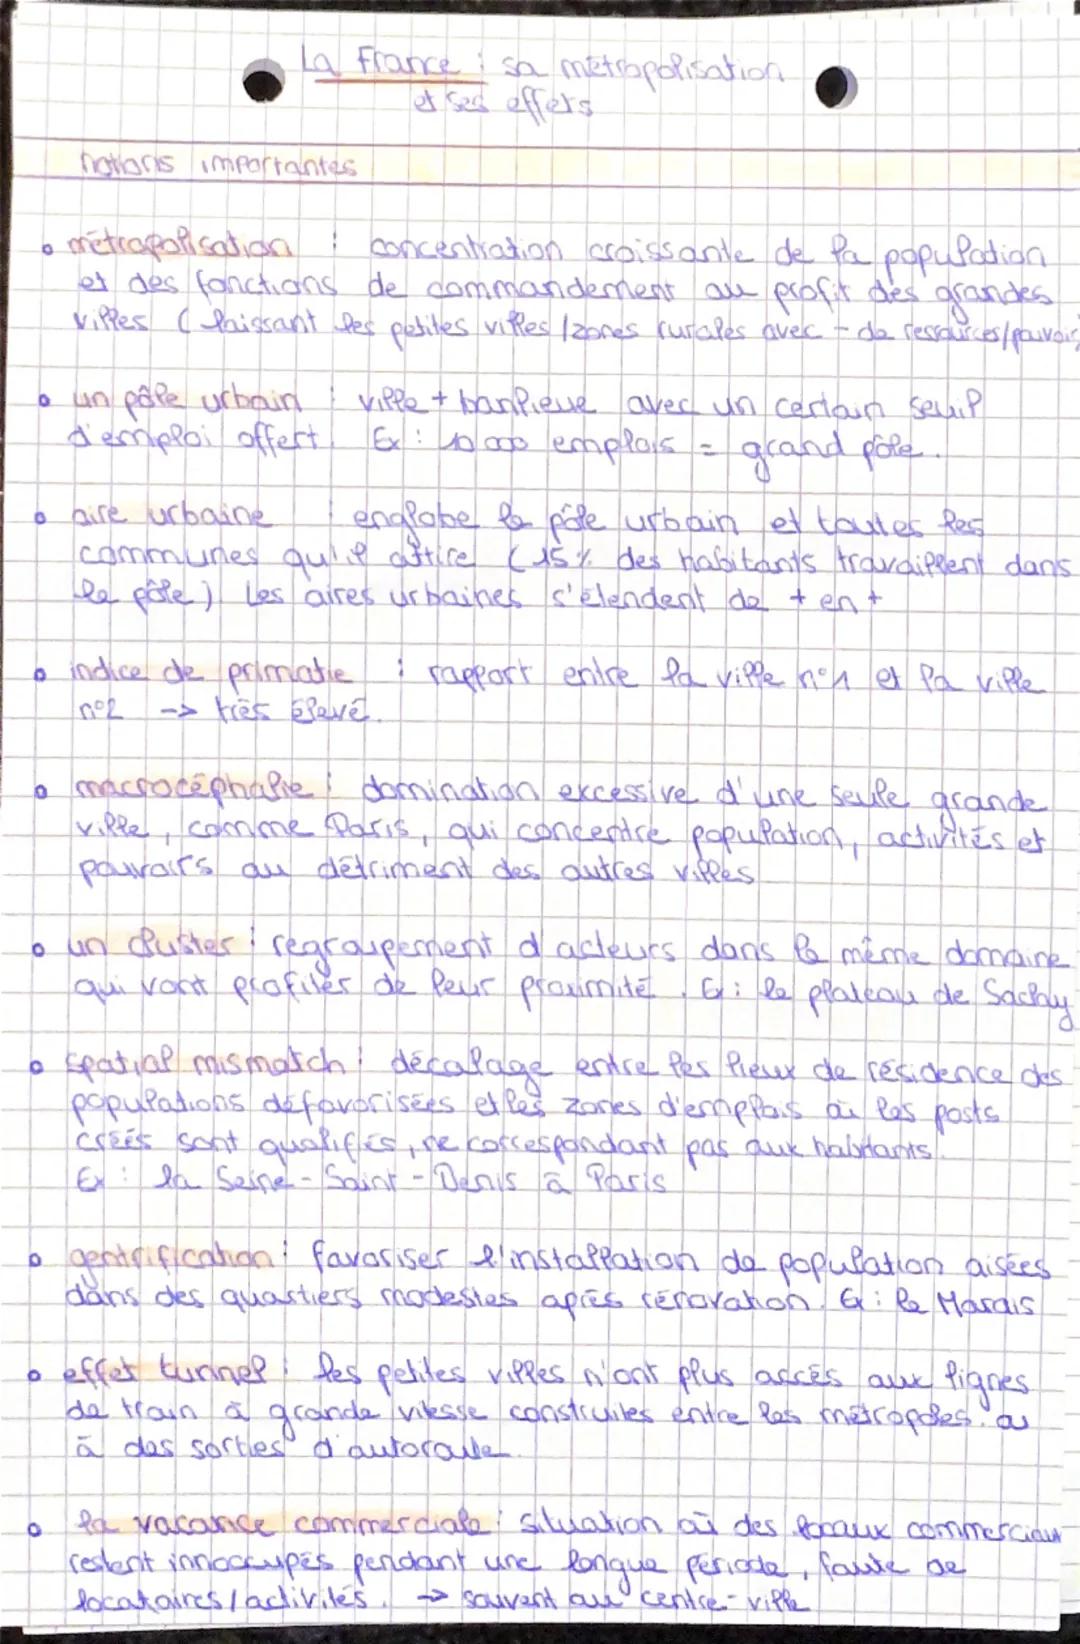 La France : sa métropolisation
et ses effets
notions importantes
métropolisation : concentration croissante de la population
et des fonctions de commandement au profit des grandes
villes ( laissant les petites villes / zones rurales avec - de ressources/pouvoirs
un pôle urbain : ville + banlieue avec un certain seuil
d'emploi offert. Ex : 10 000 emplois = grand pôle.
aire urbaine : englobe le pôle urbain et toutes les
communes qu'il attire ( 15 % des habitants travaillent dans
le pôle ) Les aires urbaines s'étendent de + en +
indice de primatie : rapport entre la ville n°1 et la ville
n°2 -> très élevé.
macrocéphalie : domination excessive d'une seule grande
ville, comme Paris, qui concentre population, activités et
pouvoirs au détriment des autres villes
un cluster : regroupement d'acteurs dans le même domaine
qui vont profiter de leur proximité. Ex : le plateau de Saclay
spatial mismatch : décalage entre les lieux de résidence des
populations défavorisées et les zones d'emplois où les posts
créés sont qualifiés, ne correspondant pas aux habitants.
Ex : la Seine-Saint-Denis à Paris
gentrification : favoriser l'installation de population aisées
dans des quartiers modestes après rénovation. Ex : le Marais
effet tunnel : les petites villes n'ont plus accès aux lignes
de train à grande vitesse construites entre les métropoles. ou
à des sorties d'autoroute.
la vacance commerciale : situation où des locaux commerciaux
restent innoccupés pendant une longue période, faute de
locataires / activités. -> souvent au centre-ville